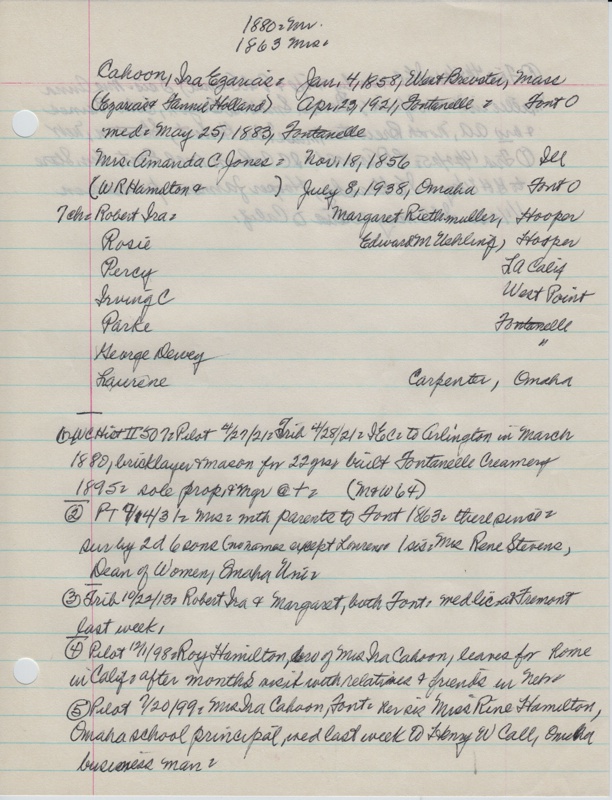 1880 = Mr.
1863 Mrs =
Cahoon, Ira Ezarias = Jan. 4, 1858, West Brewster, Mass
(Ezarias & Fannie Holland) Apr. 23, 1921, Fontanelle = Font O
med = May 25, 1883, Fontanelle
Mrs = Amanda C Jones = Nov. 18, 1856 Ill
(W R Hamilton & ) July 8, 1938, Omaha Font O
7 ch = Robert Ira = Margaret Riethmuller, Hooper
Rosie Edward M Uehling, Hooper
Percy LA Calif
Irving C West Point
Parke Fontanelle
George Dewey "
Laurene Carpenter, Omaha
① WC Hist II 507 = Pilot 4/27/21 = Trib 4/28/21 = I E C = to Arlington in March
1880, bricklayer & mason for 22 yrs, built Fontanelle Creamery
1895 = sole prop & mgr @ + = (M & W 64)
② PT = Mrs = with parents to Font 1863 = there since =
sur by 2 d 6 sons (no names except Laurene 1 sis = Mrs Rene Stevens,
Dean of Women, Omaha Uni =
③ Trib 10/22/13 = Robert Ira & Margaret, both Font = med lic at Fremont
last week,
④ Pilot 12/1/98 = Roy Hamilton, bro of Mrs Ira Cahoon, leaves for home
in Calif = after months visit with relatives & friends in
⑤ Pilot 7/20/99 = Mrs Ira Cahoon, Font = her sis Miss Rine Hamilton,
Omaha school principal, wed last week to Henry W Call, Omaha
business man =